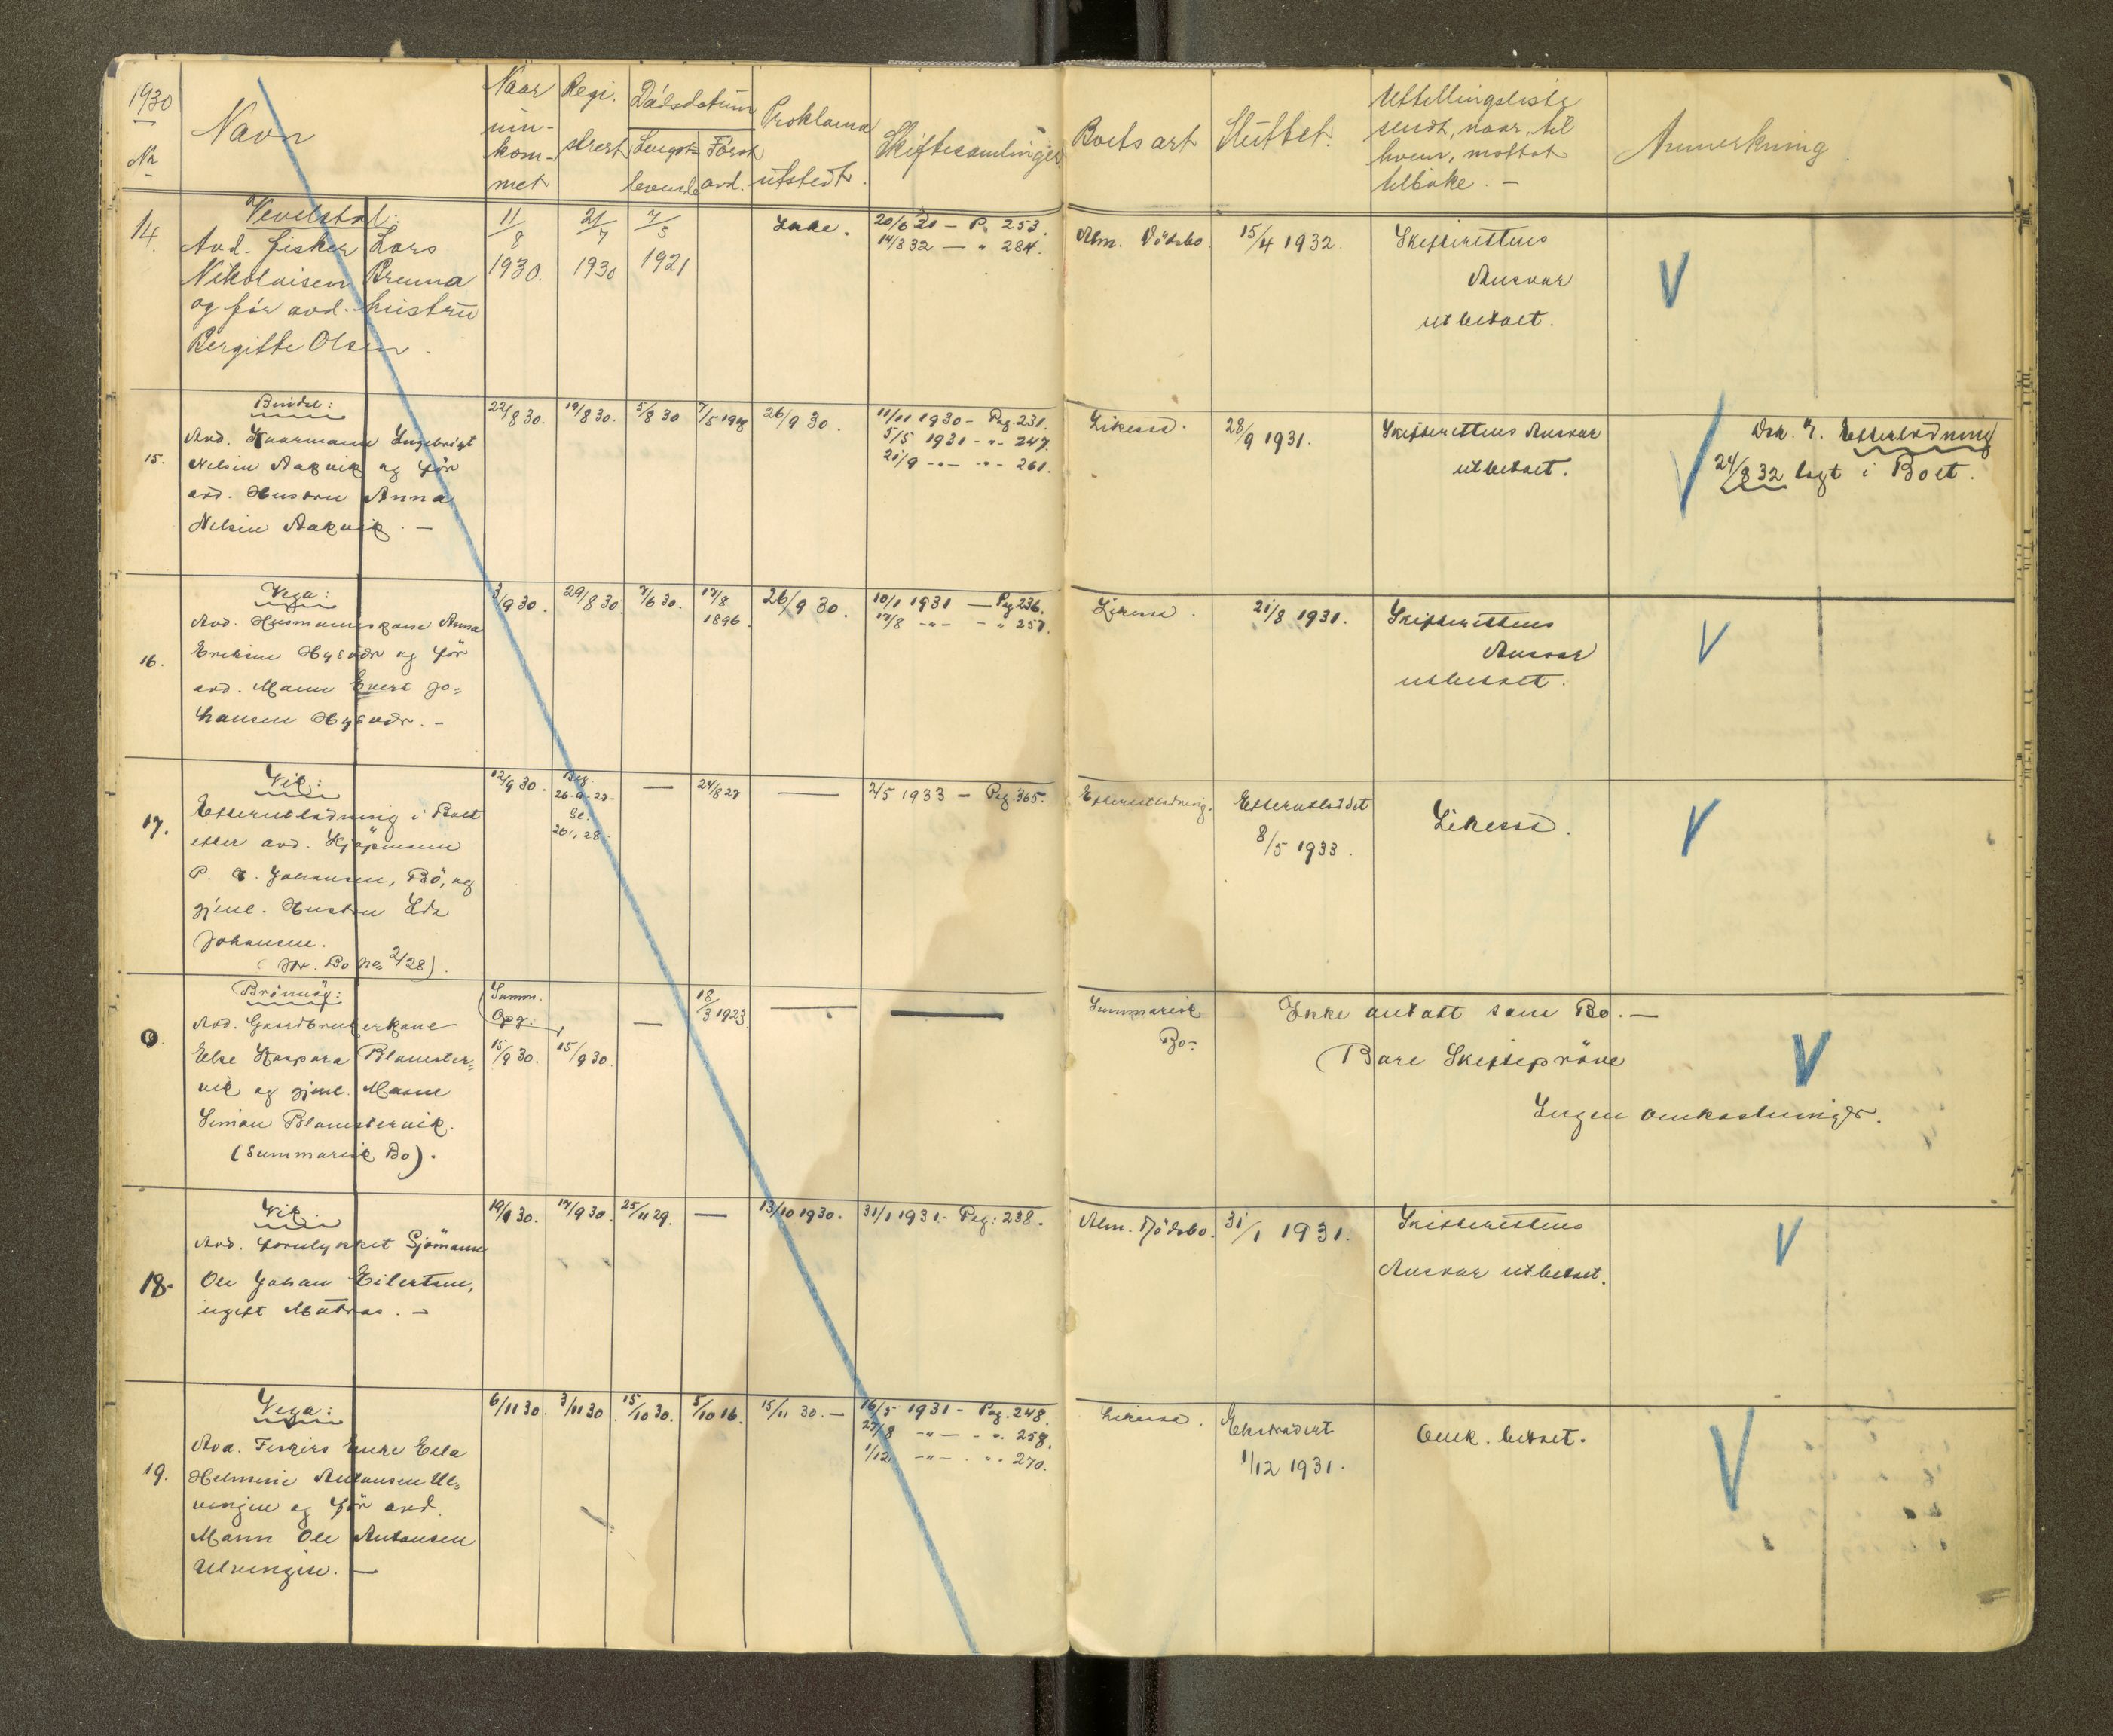 1930
Nr
Navn
Naar
inn-
kom-
met
Regi-
strert
Dødsdatum
Lengst-
levende
Först
avd.
Proklama
utstedt.
Skiftesamlinger
Boets art
Sluttet.
Uttellingsliste
sendt, naar, til
hvem, mottat
tilbake. —
Anmerkning.
14.
Vevelstad:
Avd. fisker Lars
Nikolaisen Bremna
og før avd. hustru
Bergitte Olsen.
11/8
1930.
21/7
1930
7/3
1921
Ikke.
20/6 31 — P. 253.
14/3 32 — " 284.
Alm. Dödsbo.
15/4 1932.
Skifterettens
Ansvar
utbetalt.
15.
Bindal:
Avd. Kaarmann Ingebrigt
Nelsen Aakvik og för
avd. Hustru Anna
Nelsen Aakvik. —
22/8 30.
19/8 30.
5/8 30
7/5 1908
26/9 30.
11/11 1930 - Pag 231.
5/5 1931 - " - 247.
21/9 -"- -"- 261.
Likesaa.
28/9 1931.
Skifterettens Ansvar
utbetalt.
Dok. 7. Efterlodning
24/8 32 lagt i Boet.
16.
Vega:
Avd. Husmannskone Anna
Eriksen Hysvær og för
avd. Mann Evert Jo=
hansen Hysvær. -
3/9 30.
29/8 30.
7/6 30.
17/8
1896.
26/9 30.
10/1 1931 — Pag 236.
17/8 -"- - " 257.
Likesaa.
21/8 1931.
Skifterettens
Ansvar
utbetalt.
17.
Vik:
Efterutlodning i Boet
efter avd. Kjöpmann
P. A. Johansen, Bö, og
gjenl. Hustru Ida
Johansen.
(Jfr. Bo No. 2/28).
12/9 30.
Beg.
26-9-27-
Sl.
20/1 28.
—
24/8 27
—
2/5 1933 — Pag. 365.
Efterutlodning.
Efterutloddet
8/5 1933.
Likesaa.
0
Brönnöy:
Avd. Gaardbrukerkone
Else Kaspara Blomster=
vik og gjenl. Mann
Simon Blomstervik.
(Summarisk Bo).
(Summ.
Opg.
15/9 30.
15/9 30
—
18/3 1923
—
—
Summarisk
Bo-
Ikke antatt som Bo. —
(Bare Skifteprøve
Ingen omkostninger.
18.
Vik:
Avd. forulykket Sjömann
Ole Johan Eilertsen,
ugift Matros. —
19/9 30.
17/9 30.
25/11 29.
—
13/10 1930.
31/1 1931. - Pag: 238.
Alm. Dödsbo.
31/1 1931.
Skifterettens
Ansvar utbetalt.
19.
Vega:
Avd. Fiskers Enke Ella
Helmine Antonsen Ul=
vingen og för avd.
Mann Ole Antonsen
Ulvingen. —
6/11 30.
3/11 30.
15/10 30.
5/10 16.
15/11 30. —
16/5 1931 - Pag. 248.
27/8 -"- - ". 258.
1/12 -"- . ". 270.
Likesaa.
Ekstradert
1/12 1931.
Omk. betalt.